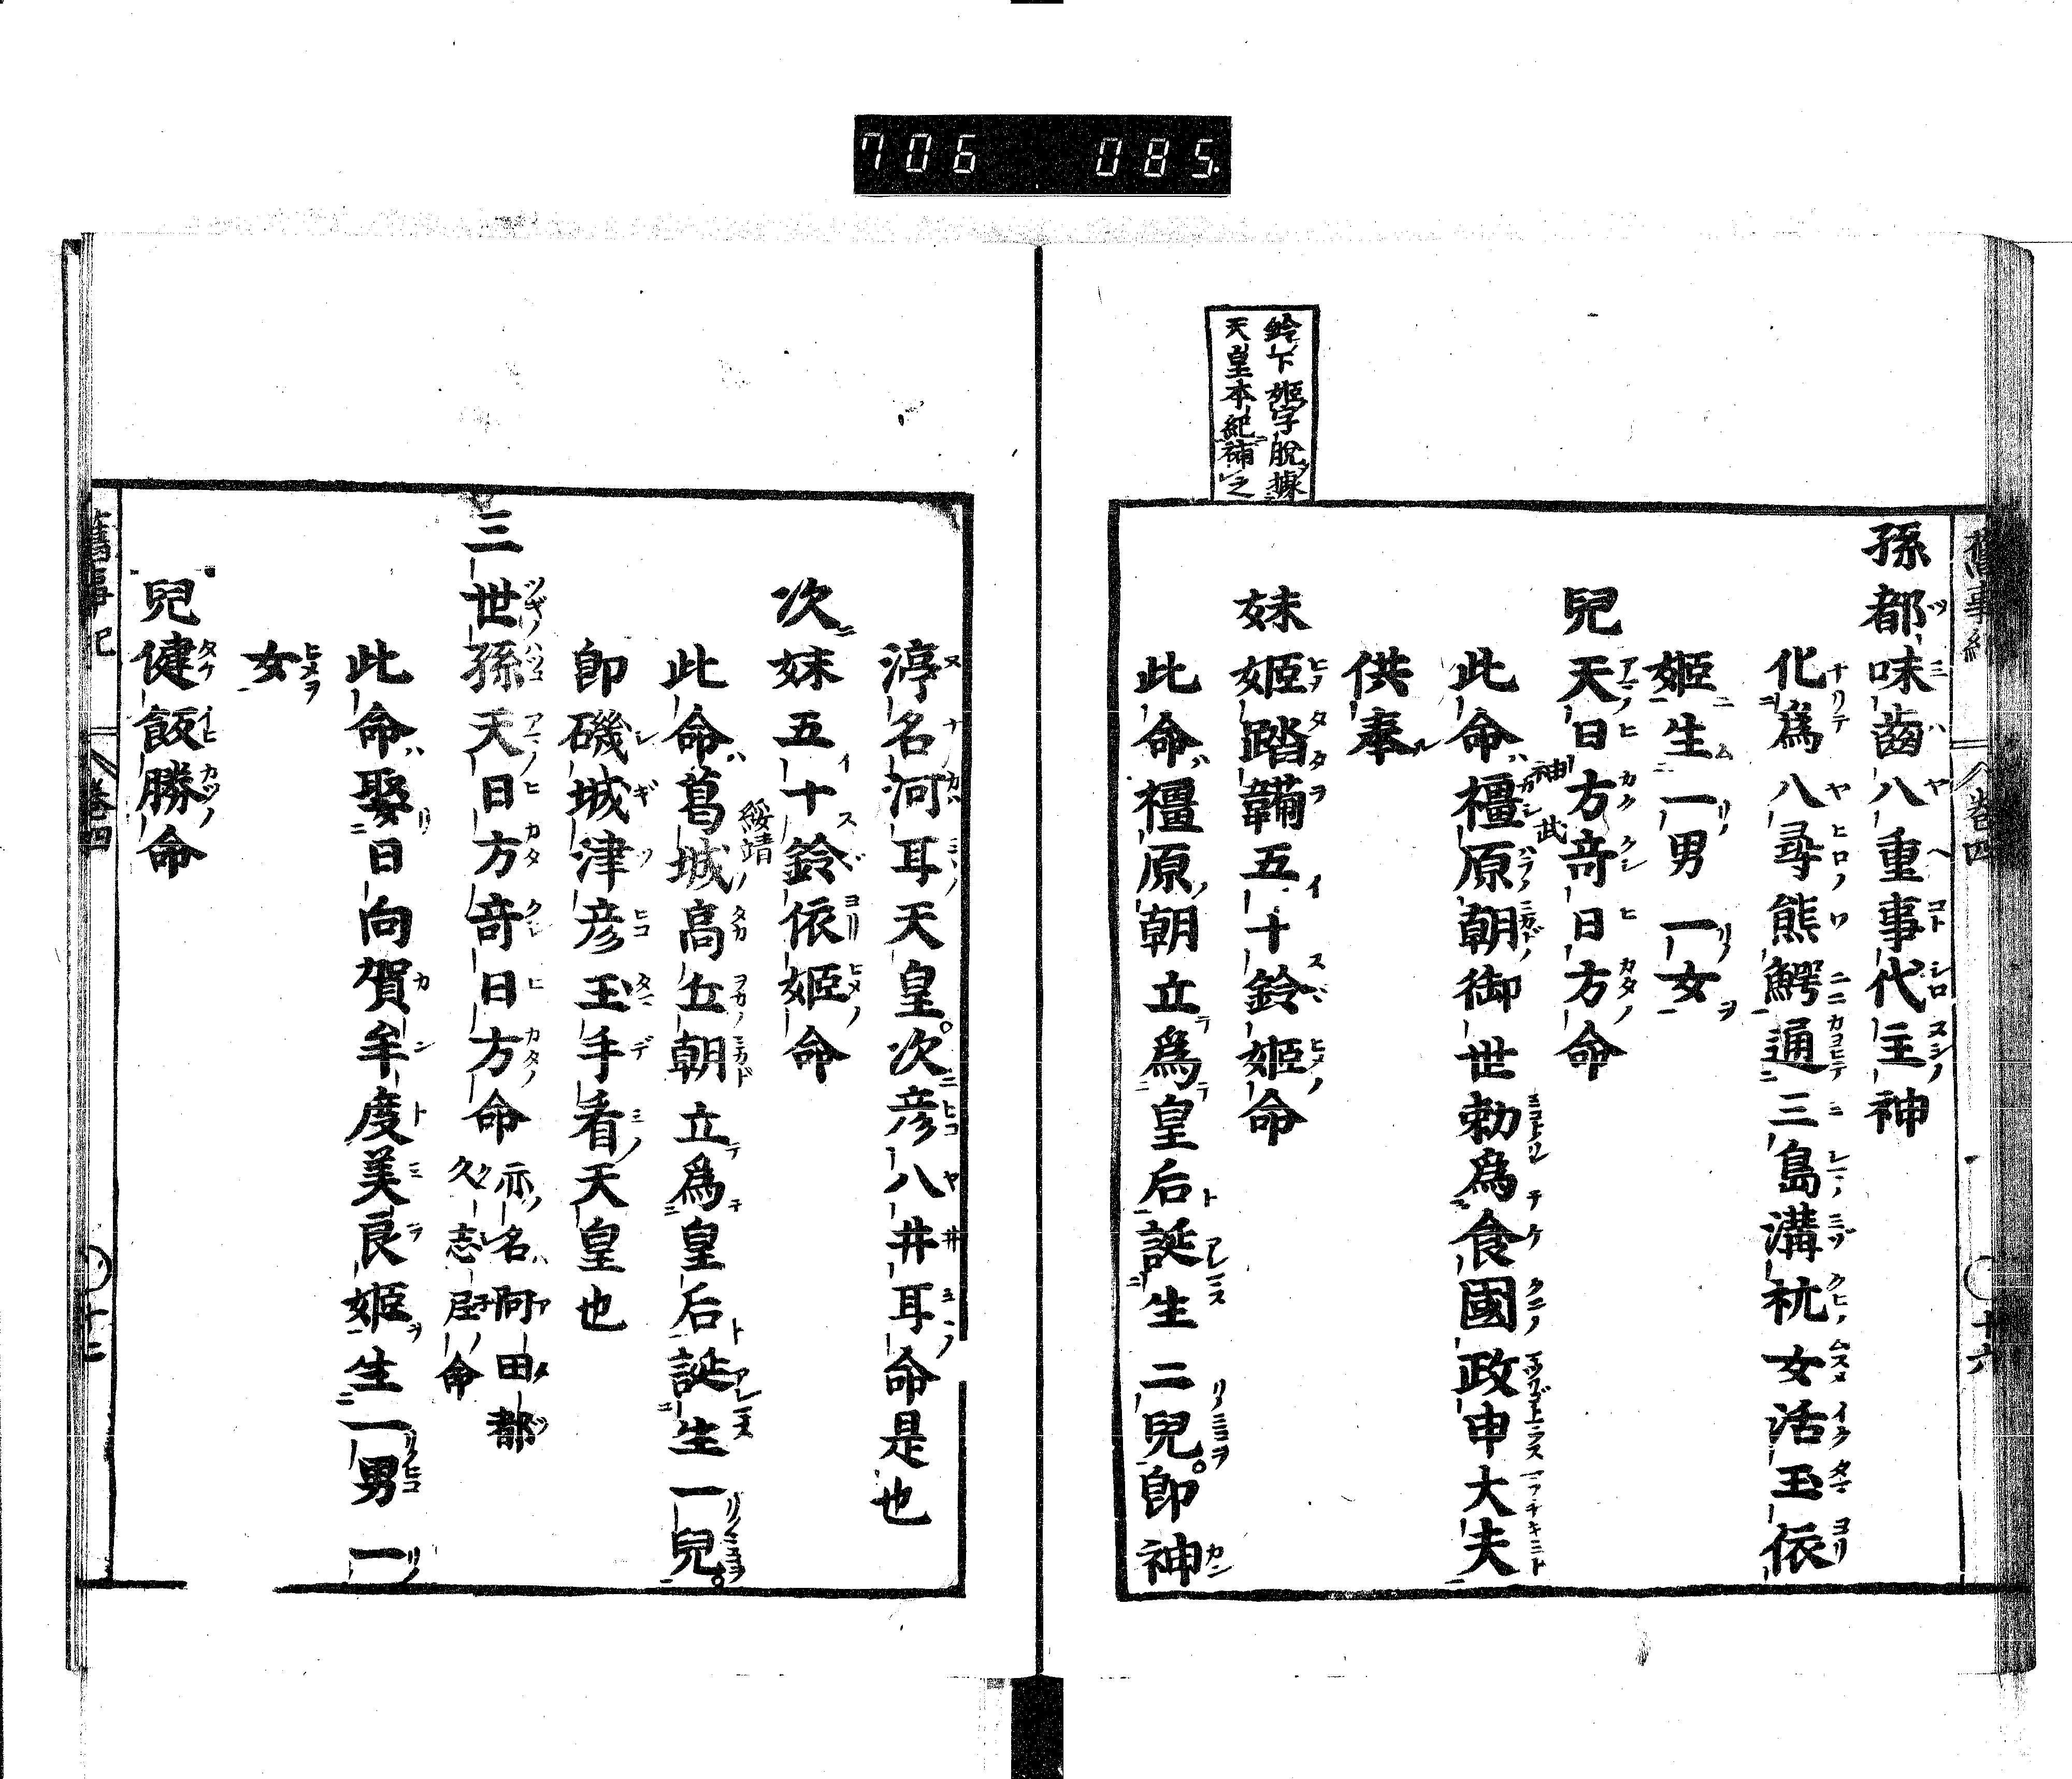 706 085
鈴下姬字脫據
天皇本紀補之
孫都味齒八重事代主神
化爲八尋熊鰐通三島溝杭女活玉依
姬生一男一女
兒天日方奇日方命
此命橿原朝御世勅爲食國政申大夫
神武
供奉
妹姬蹈鞴五十鈴姬命
此命橿原朝立爲皇后誕生二兒。卽神
渟名河耳天皇。次彥八井耳命是也
次妹五十鈴依姬命
此命葛城高丘朝立爲皇后誕生一兒。
綏靖
卽磯城津彥玉手看天皇也
三世孫天日方奇日方命
亦名阿田都
久志尼命
此命娶日向賀牟度美良姬生一男一
女
兒健飯勝命
舊事紀 卷四 十六
舊事紀 卷四